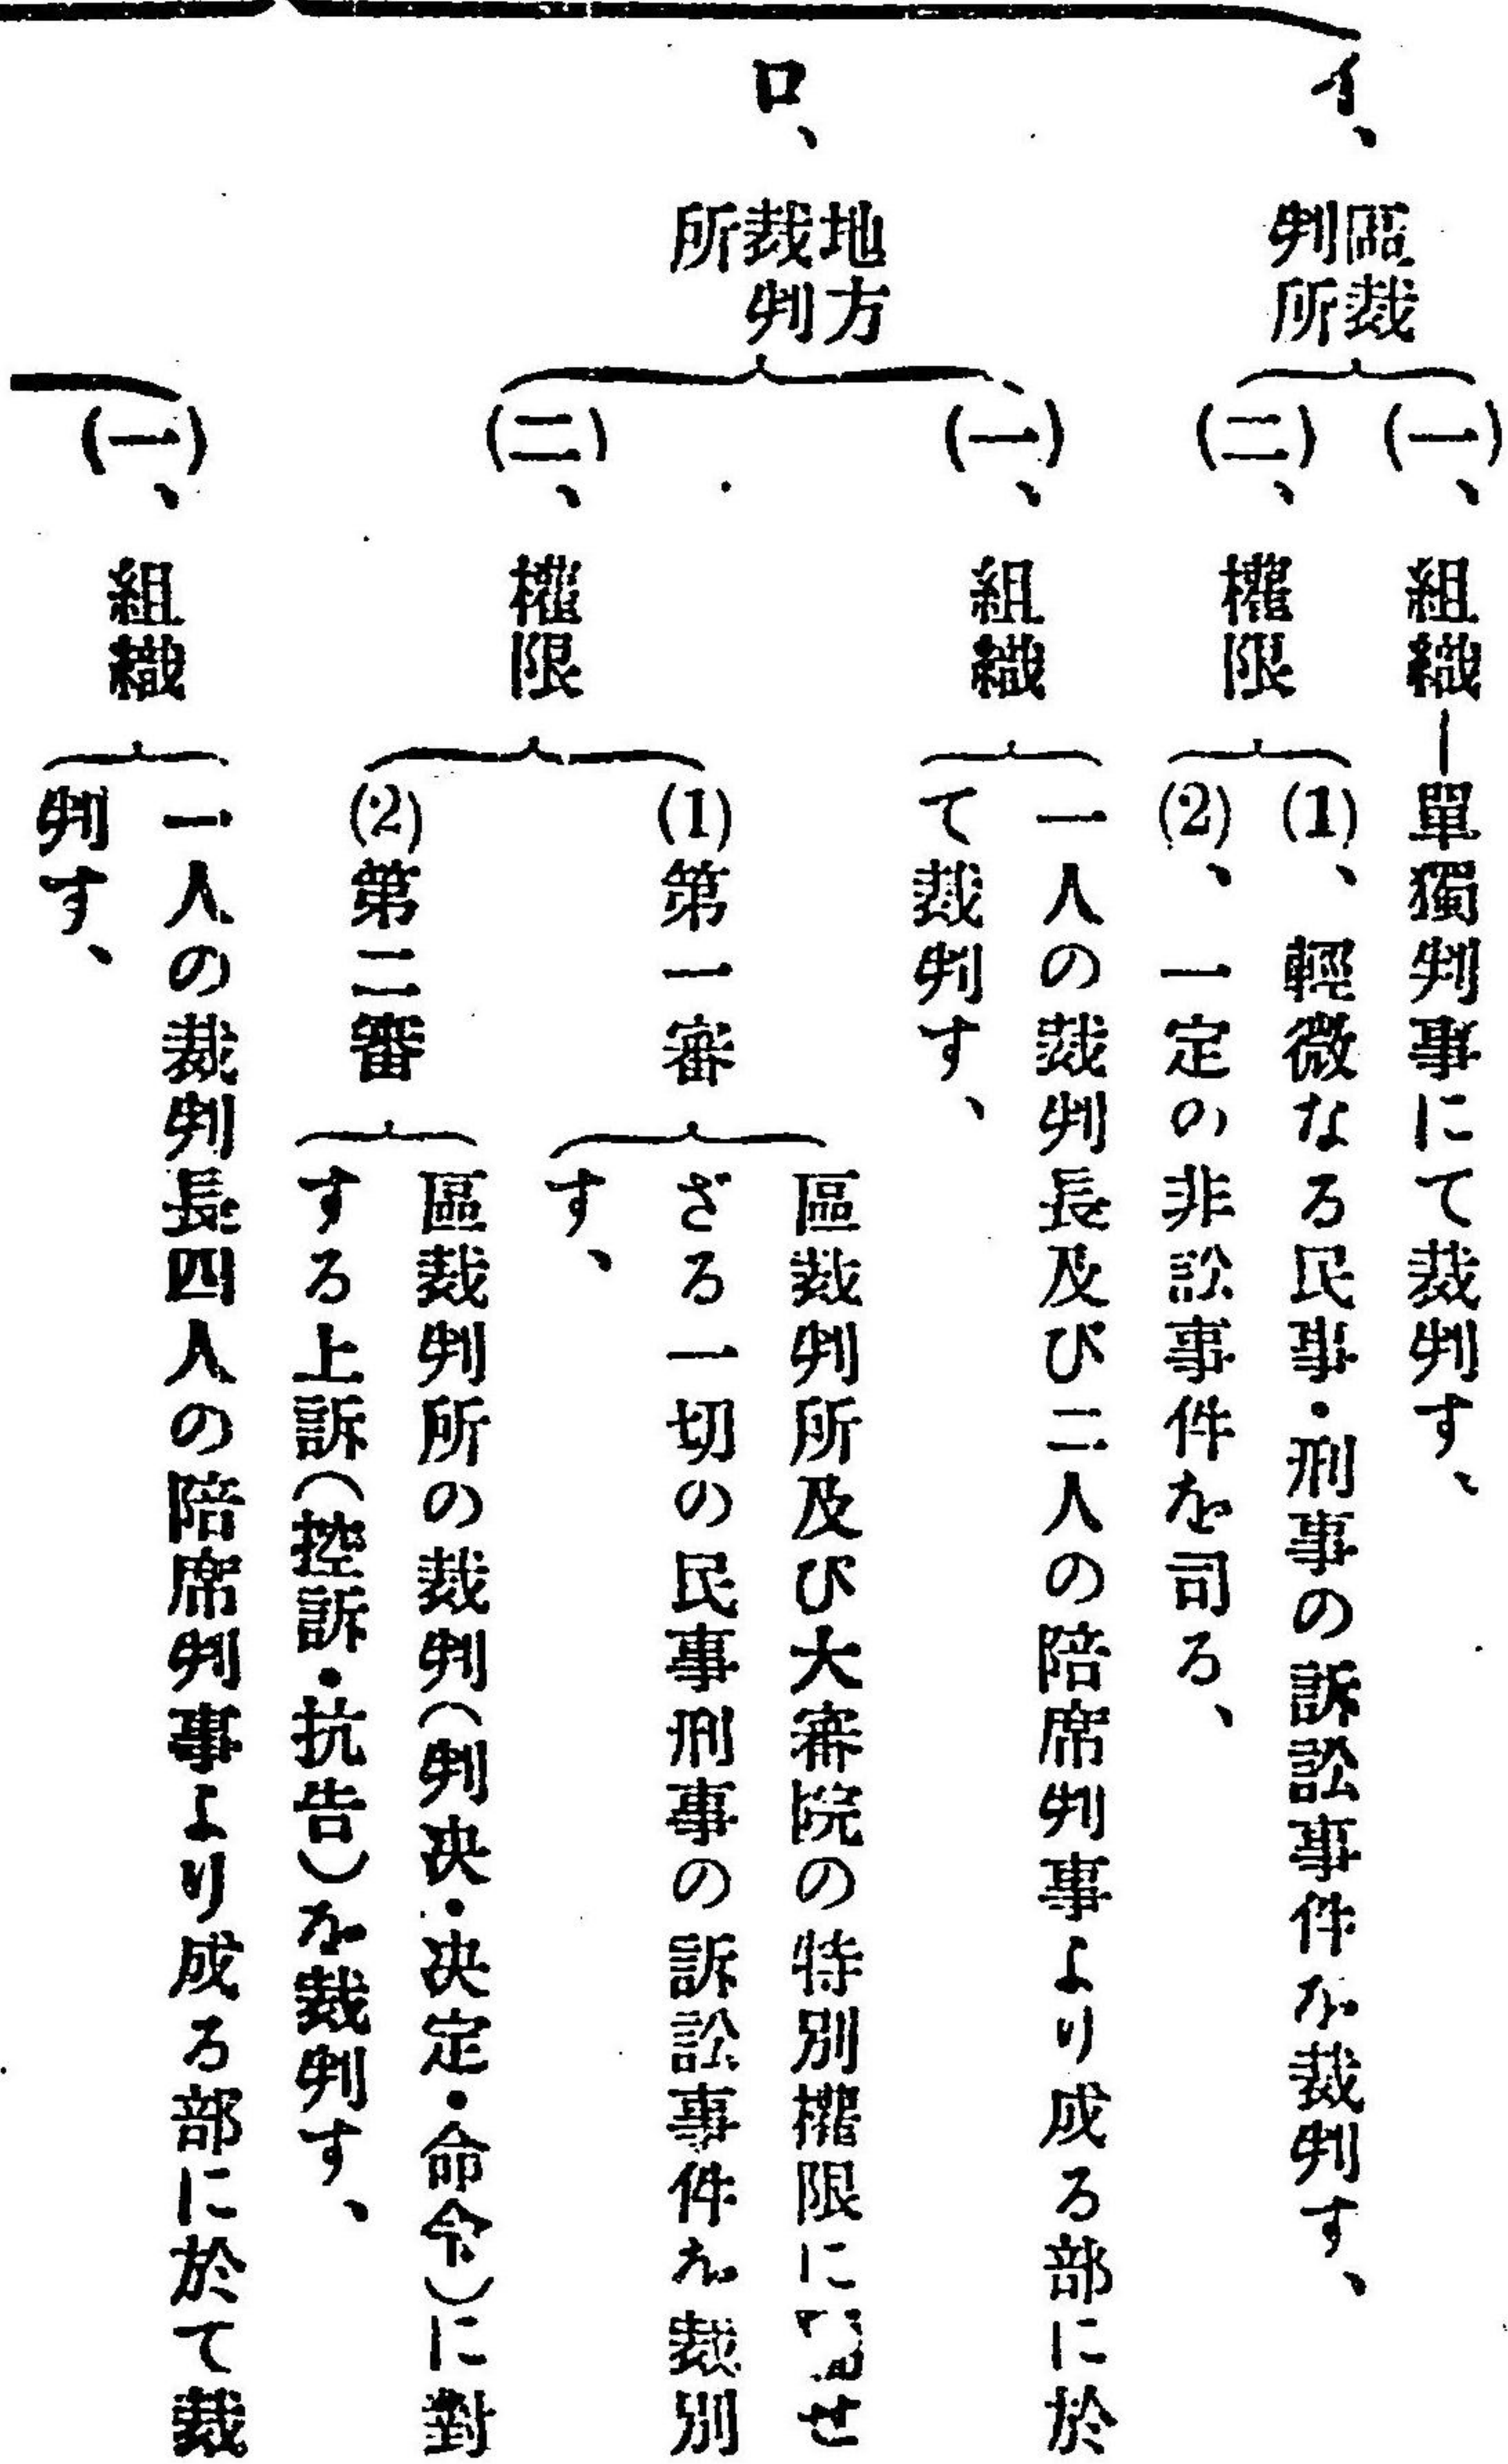 イ、
區裁
判所
(一)、組織―單獨判事にて裁判す、
(二)、權限
(1)、輕微なる民事・刑事の訴訟事件を裁判す、
(2)、一定の非訟事件を司る、
ロ、
地方
裁判
所
(一)、組織
一人の裁判長及び二人の陪席判事より成る部に於
て裁判す、
(二)、權限
(1)第一審
區裁判所及び大審院の特別權限に せ
ざる一切の民事刑事の訴訟事件を裁別
す、
(2)第二審
區裁判所の裁判(判决・决定・命令)に對
する上訴(控訴・抗告)を裁判す、
(一)、組織
一人の裁判長四人の陪席判事より成る部に於て裁
判す、